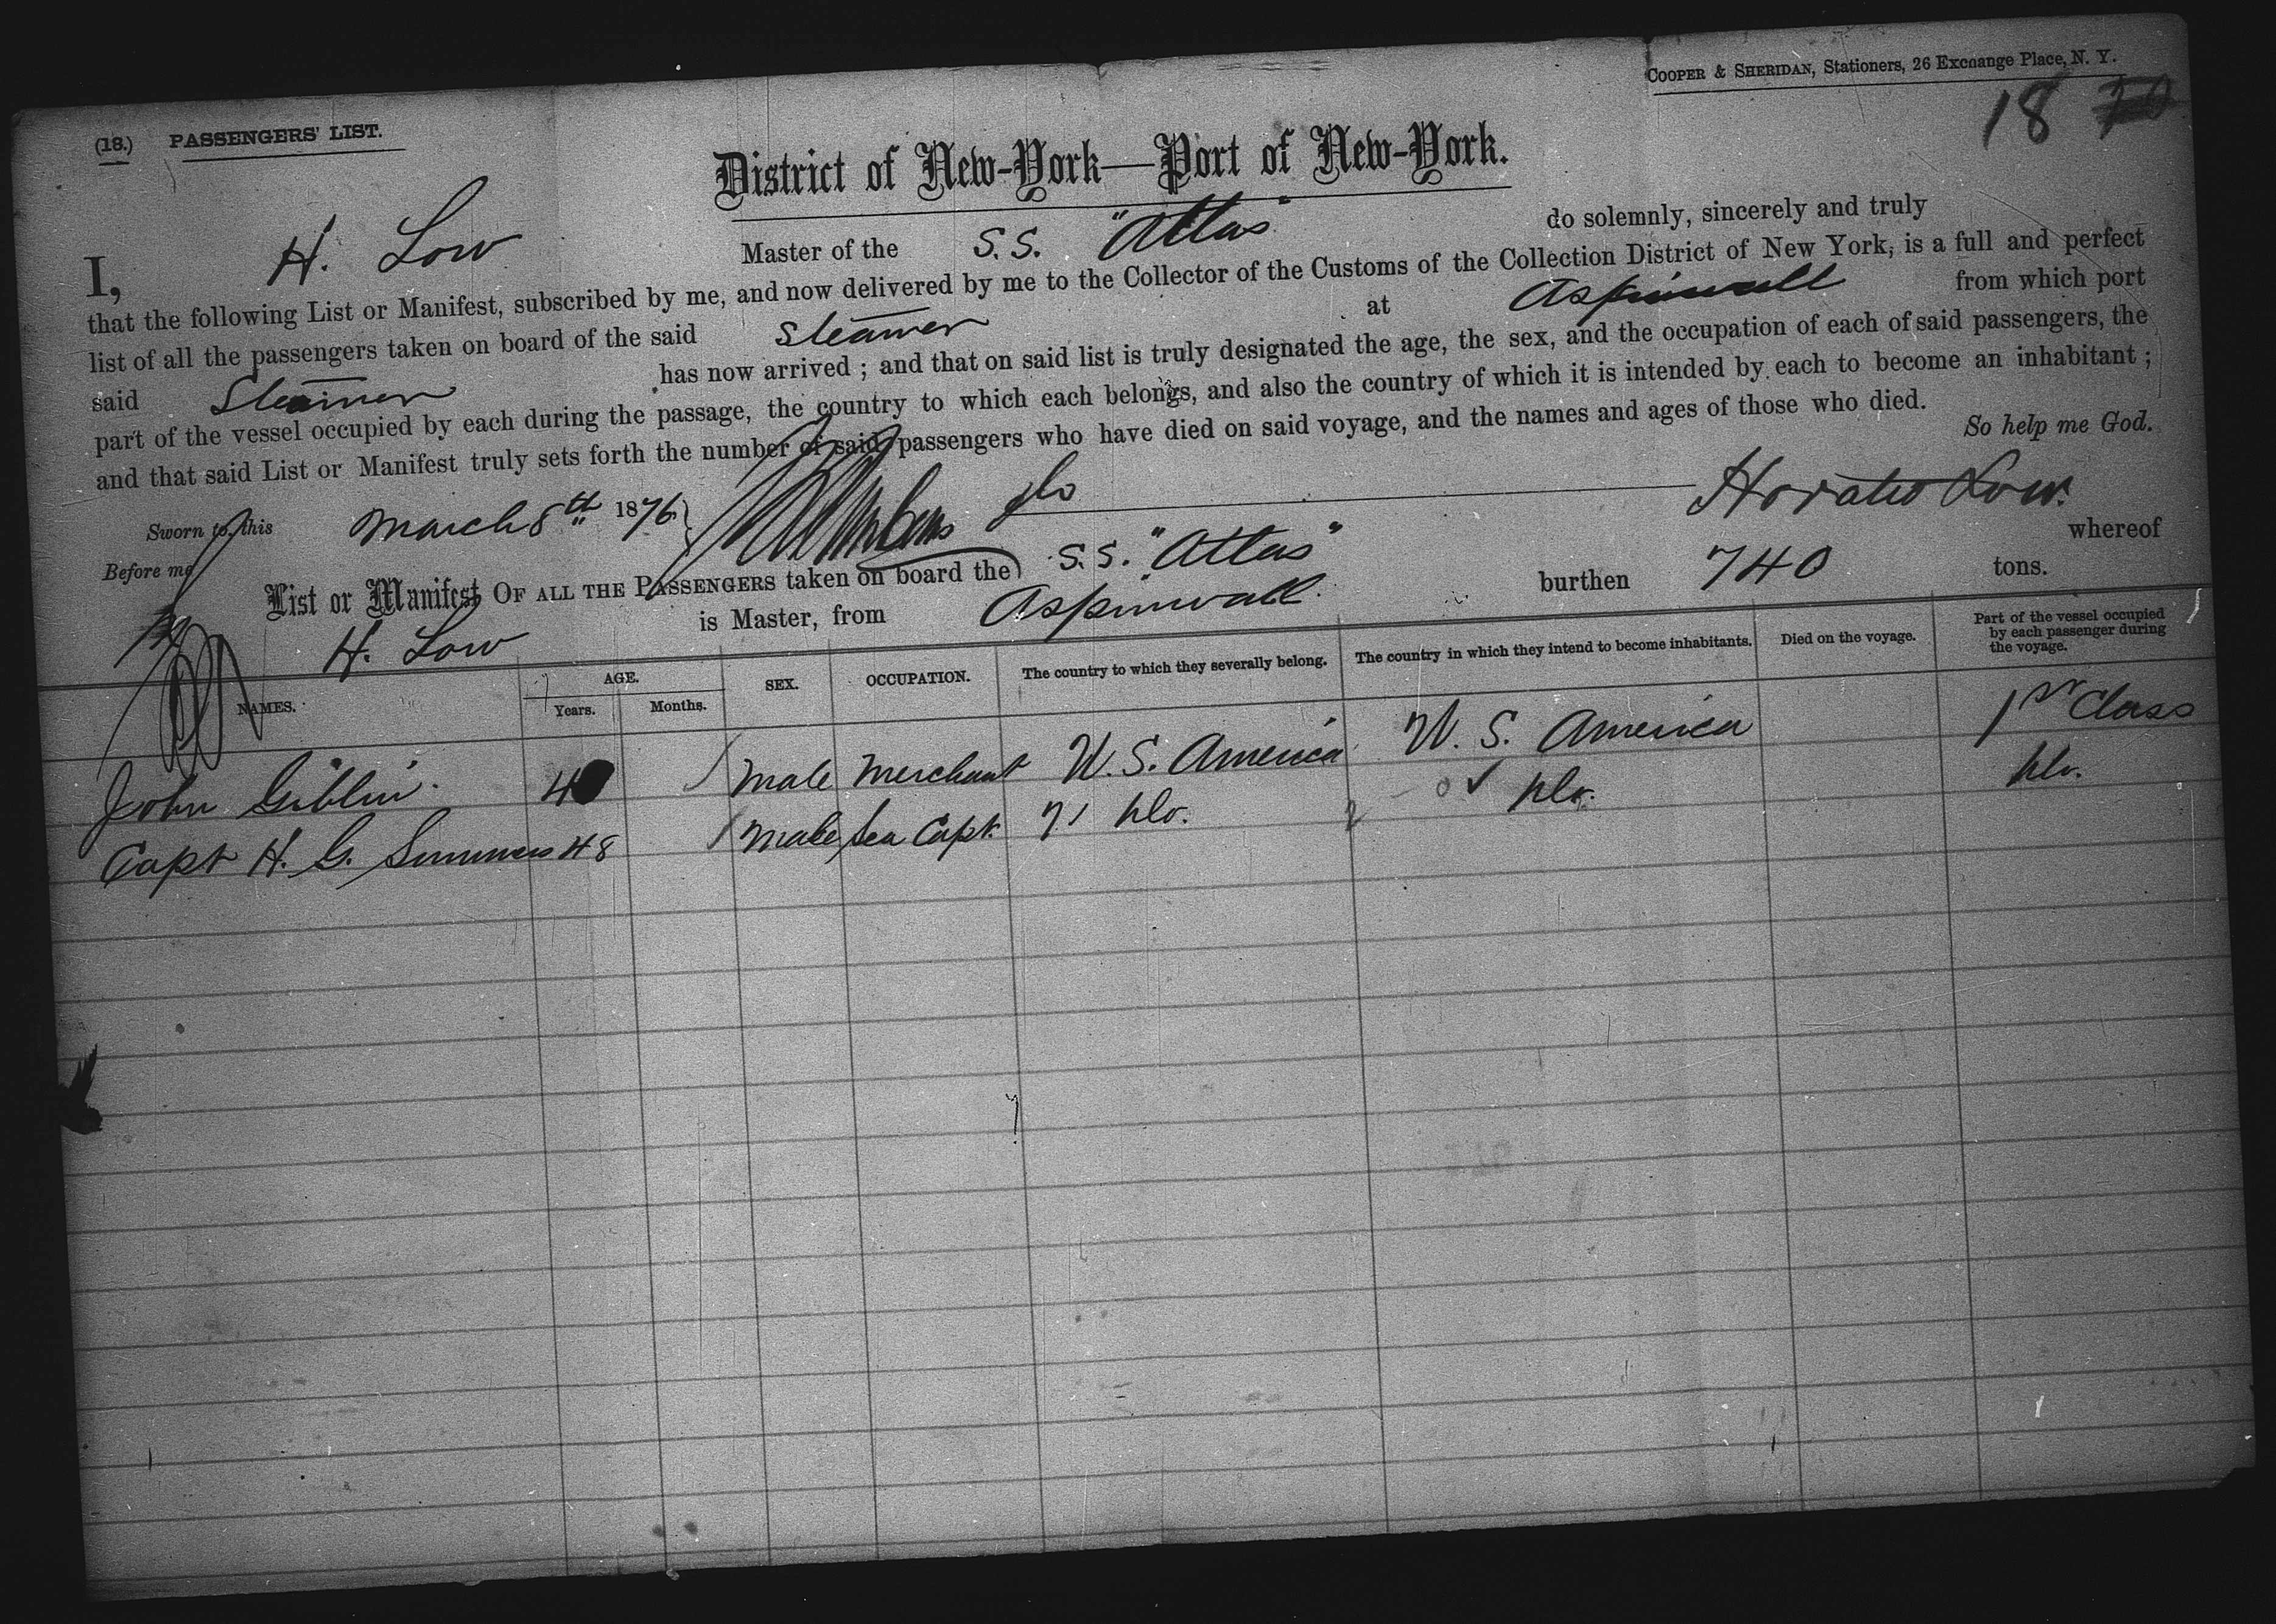 COOPER & SHERIDAN, Stationers, 26 Exchange Place, N. Y.
18
(18.) PASSENGERS' LIST.
District of New-York—Port of New-York.
I, H. Low Master of the S.S. "Atlas" do solemnly, sincerely and truly
that the following List or Manifest, subscribed by me, and now delivered by me to the Collector of the Customs of the Collection District of New York, is a full and perfect
list of all the passengers taken on board of the said Steamer at Aspinwall from which port
said Steamer has now arrived ; and that on said list is truly designated the age, the sex, and the occupation of each of said passengers, the
part of the vessel occupied by each during the passage, the country to which each belongs, and also the country of which it is intended by each to become an inhabitant ;
and that said List or Manifest truly sets forth the number of said passengers who have died on said voyage, and the names and ages of those who died.
So help me God.
Sworn to this March 8th 1876 Horatio Low.
Before me
List or Manifest OF ALL THE PASSENGERS taken on board the S.S. "Atlas" burthen 740 tons. whereof
H. Low is Master, from Aspinwall.
NAMES. AGE. Years. Months. SEX. OCCUPATION. The country to which they severally belong. The country in which they intend to become inhabitants. Died on the voyage. Part of the vessel occupied by each passenger during the voyage.
John Giblin. Male Merchant U.S. America U.S. America 1st Class
Capt H. G. Simmons 48 Male Sea Capt. do. do. do.